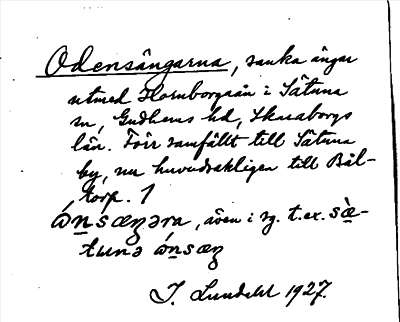 Odensängarna, sanka ängar
utmed Hornborgaån i Sätuna
sn, Gudhems hd, Skaraborgs
län. Förr samfällt till Sätuna
by, nu huvudsakligen till Bål-
torp. 1
ώn̲sæŋəra, även i sg. t.ex. sὰ̲-
tunə ώn̲sæŋ
J. Lundahl 1927.